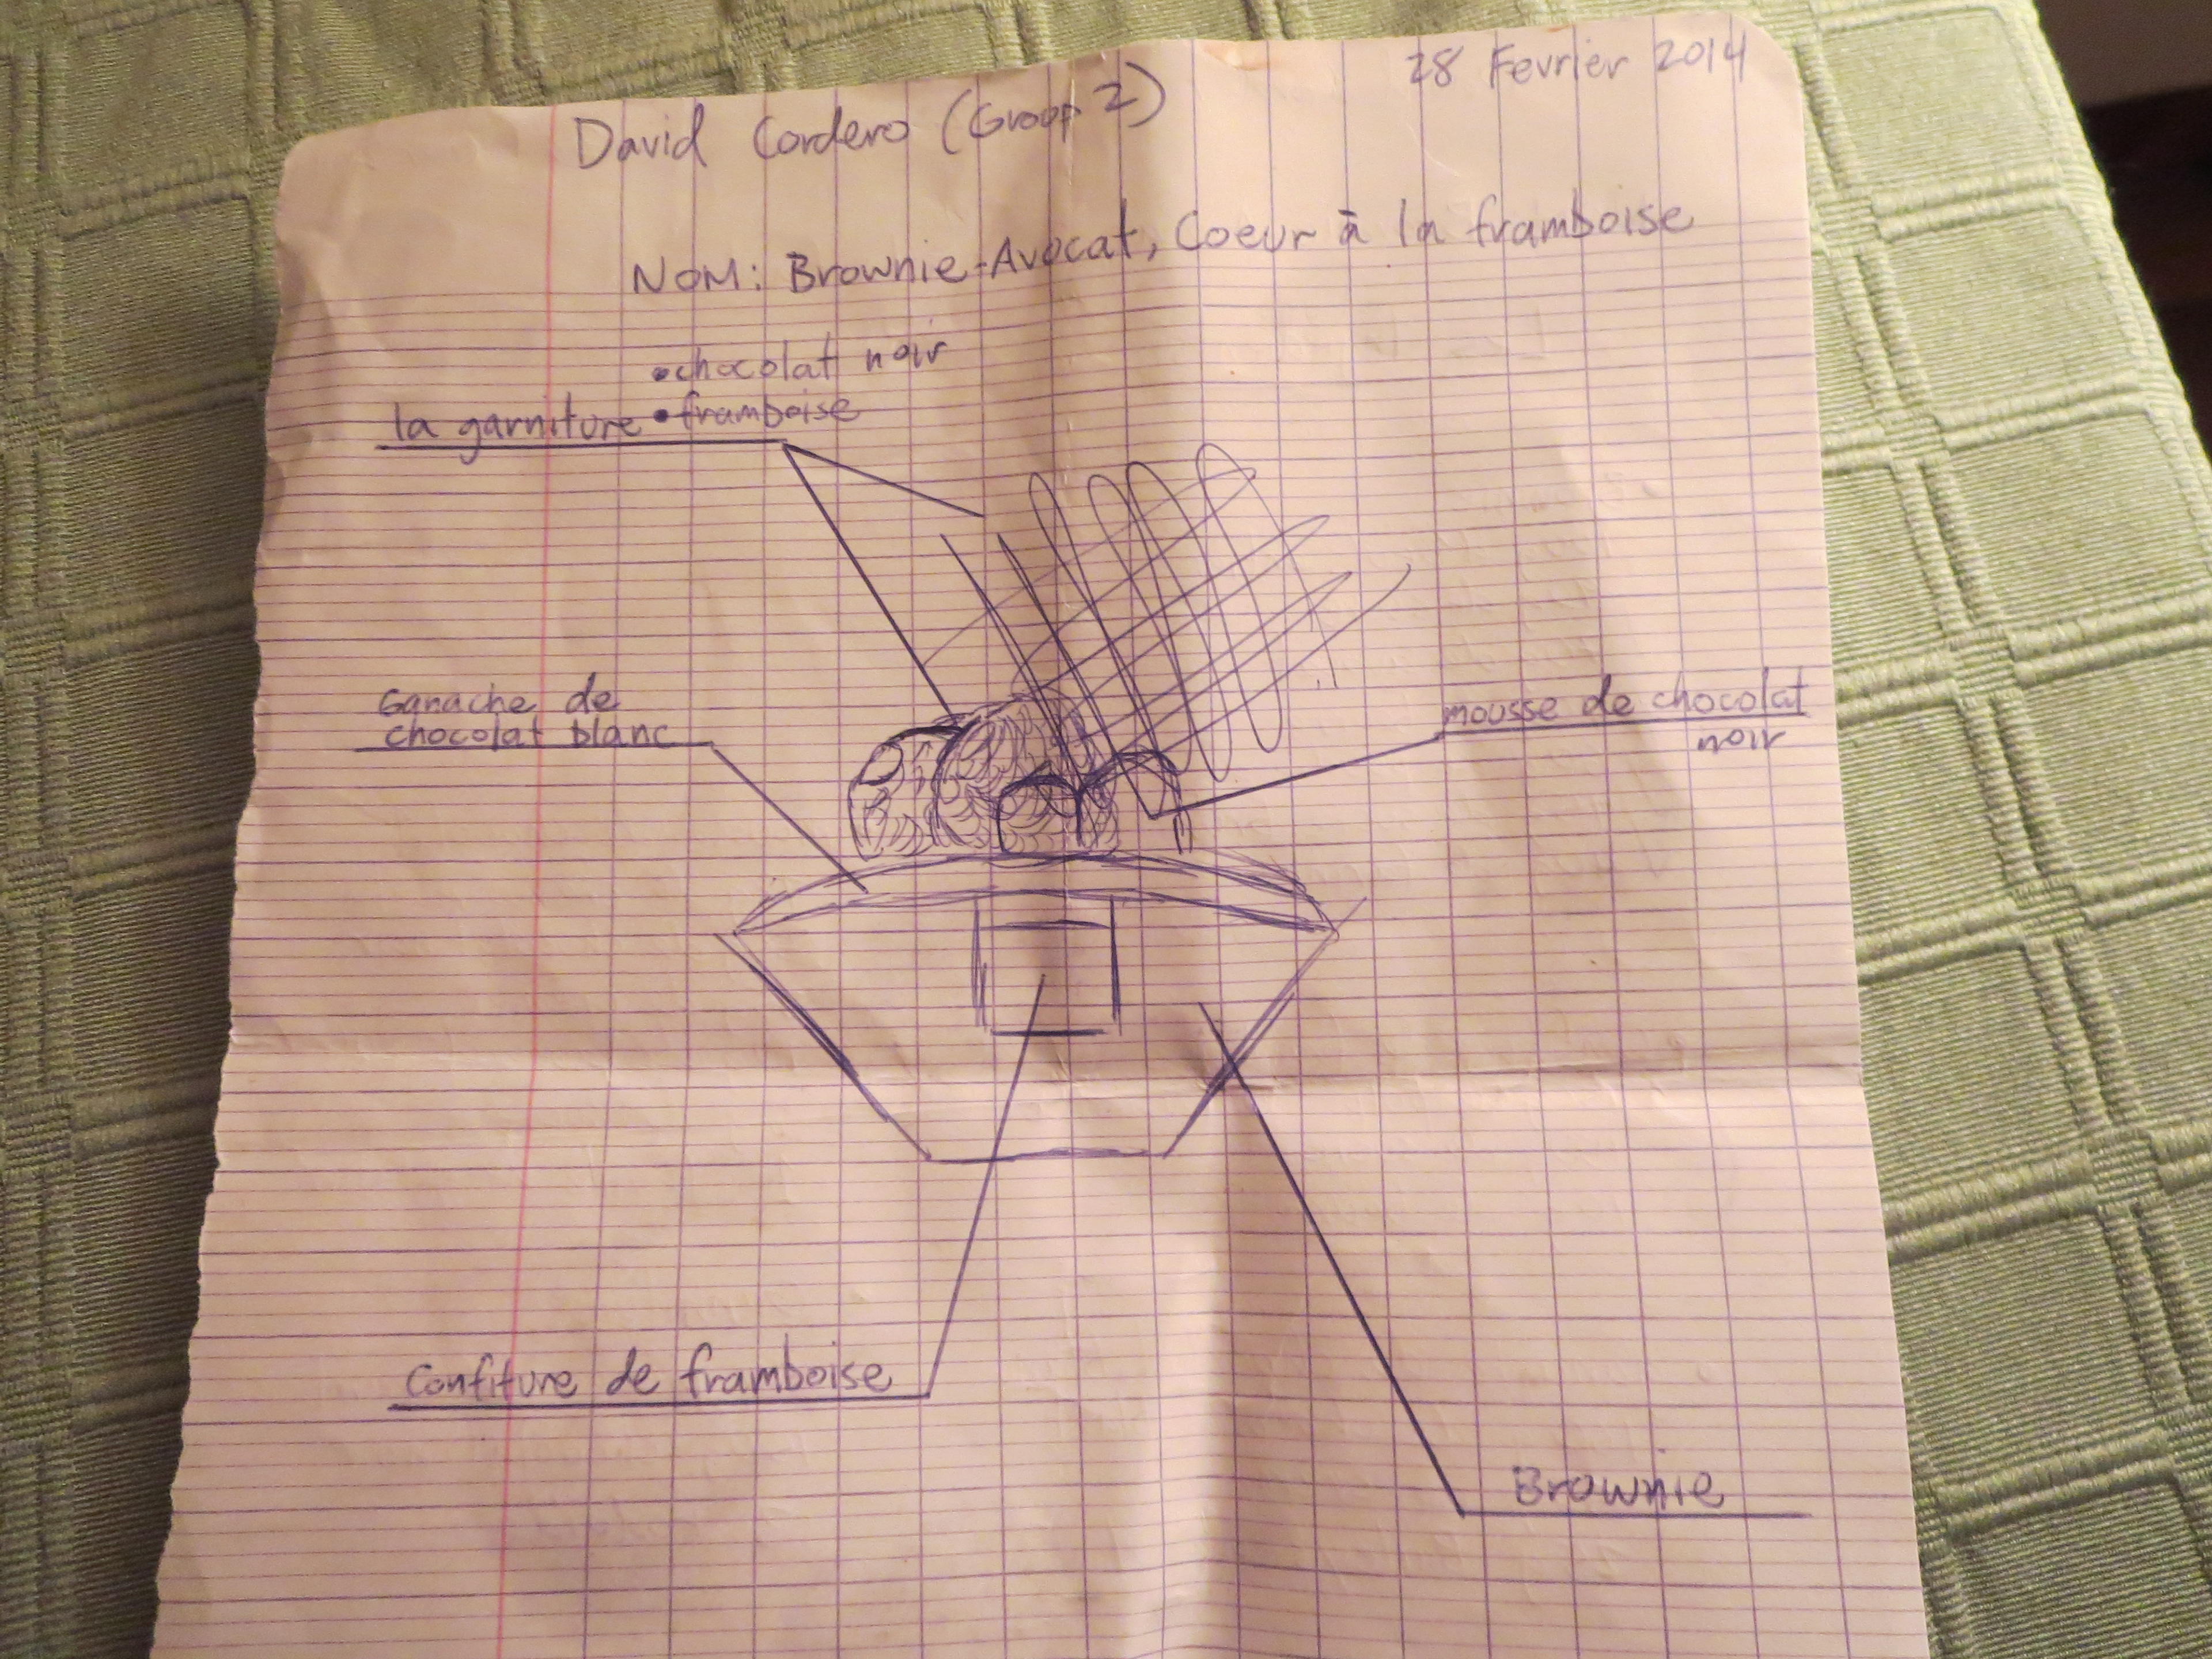 28 Fevrier 2014
David Cordero (Group 2)
NOM: Brownie-Avocat, Coeur à la framboise
• chocolat noir
la garniture • framboise
Ganache de
chocolat blanc
mousse de chocolat
noir
Confiture de framboise
Brownie